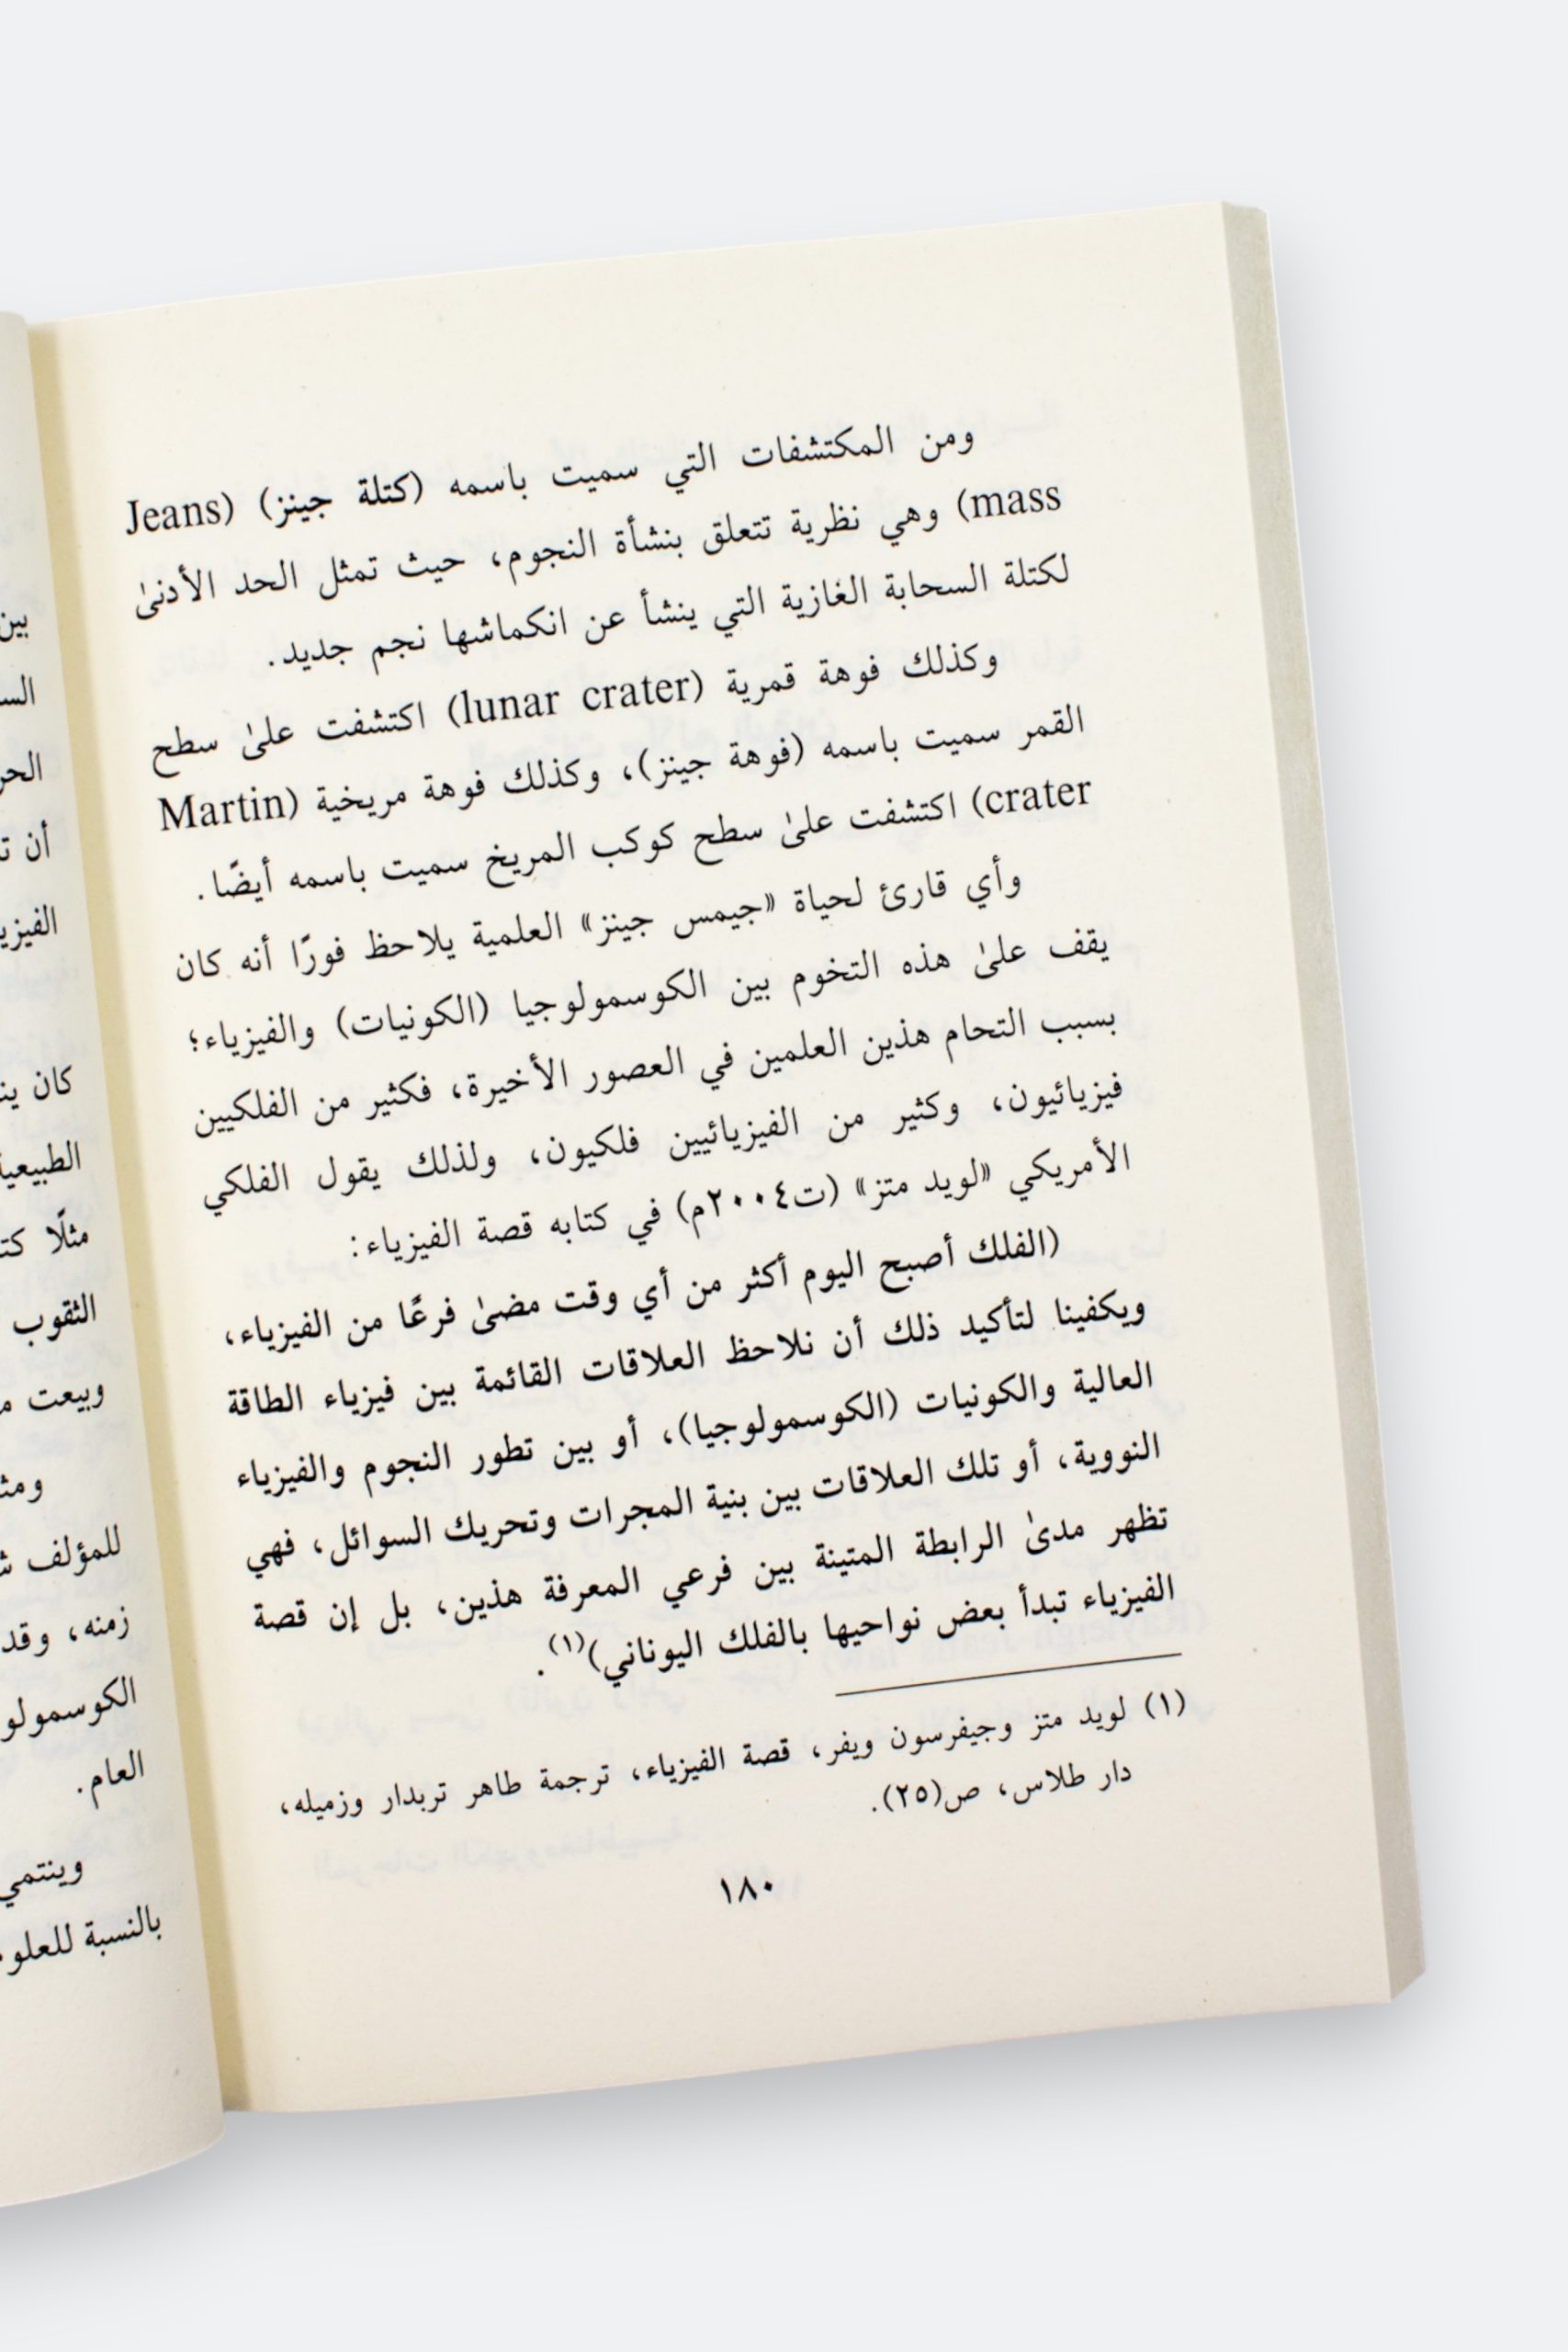 ومن المكتشفات التي سميت باسمه (كتلة جينز) (Jeans
mass) وهي نظرية تتعلق بنشأة النجوم، حيث تمثل الحد الأدنىٰ
لكتلة السحابة الغازية التي ينشأ عن انكماشها نجم جديد.
وكذلك فوهة قمرية (lunar crater) اكتشفت علىٰ سطح
القمر سميت باسمه (فوهة جينز)، وكذلك فوهة مريخية (Martin
crater) اكتشفت علىٰ سطح كوكب المريخ سميت باسمه أيضًا.
وأي قارئ لحياة «جيمس جينز» العلمية يلاحظ فورًا أنه كان
يقف علىٰ هذه التخوم بين الكوسمولوجيا (الكونيات) والفيزياء؛
بسبب التحام هذين العلمين في العصور الأخيرة، فكثير من الفلكيين
فيزيائيون، وكثير من الفيزيائيين فلكيون، ولذلك يقول الفلكي
الأمريكي «لويد متز» (ت٢٠٠٤م) في كتابه قصة الفيزياء:
(الفلك أصبح اليوم أكثر من أي وقت مضىٰ فرعًا من الفيزياء،
ويكفينا لتأكيد ذلك أن نلاحظ العلاقات القائمة بين فيزياء الطاقة
العالية والكونيات (الكوسمولوجيا)، أو بين تطور النجوم والفيزياء
النووية، أو تلك العلاقات بين بنية المجرات وتحريك السوائل، فهي
تظهر مدىٰ الرابطة المتينة بين فرعي المعرفة هذين، بل إن قصة
الفيزياء تبدأ بعض نواحيها بالفلك اليوناني)(١).
(١) لويد متز وجيفرسون ويفر، قصة الفيزياء، ترجمة طاهر تربدار وزميله،
دار طلاس، ص(٢٥).
١٨٠
بين
أن
كان
الطبيعية
مثلًا
الثقوب
وبيعت
للمؤلف
زمنه، وقد
العام.
وينتمي
بالنسبة